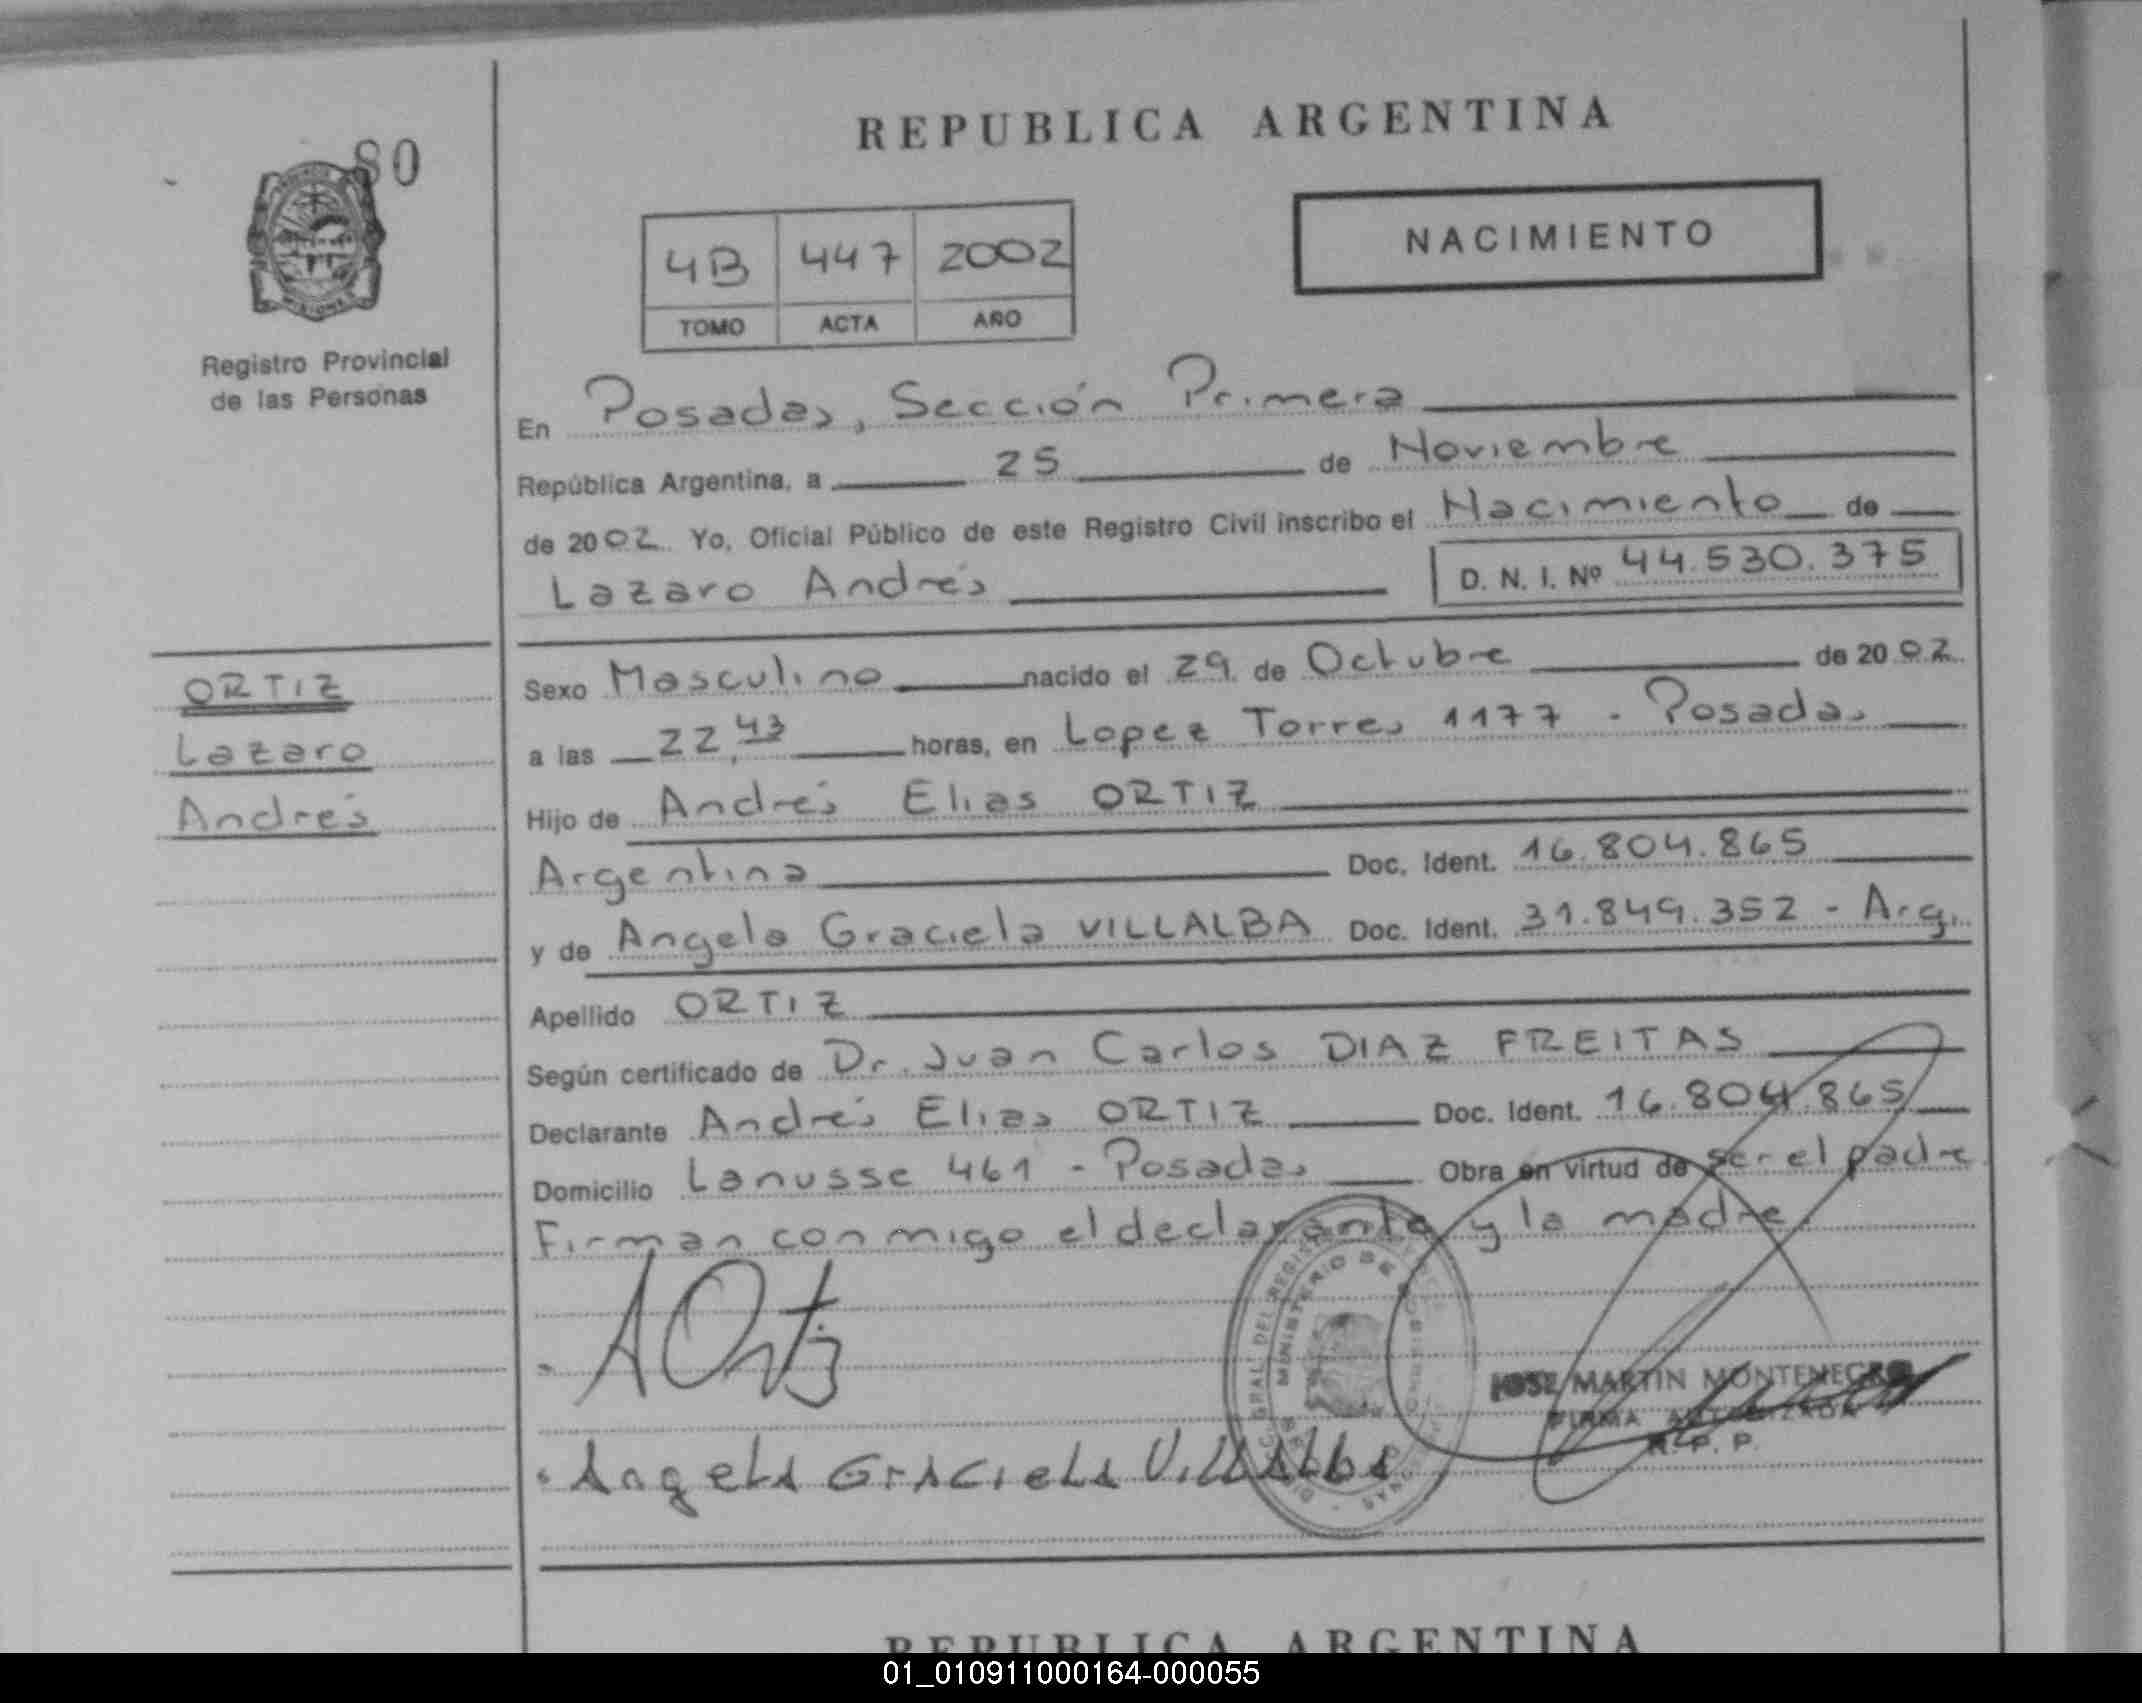 80
REPUBLICA ARGENTINA
NACIMIENTO
4B 447 2002
TOMO ACTA AÑO
Registro Provincial
de las Personas
En Posadas, Sección Primera
República Argentina, a 25 de Noviembre
de 2002. Yo, Oficial Público de este Registro Civil inscribo el Nacimiento de
Lazaro Andrés D. N. I. Nº 44.530.375
ORTIZ
Lazaro
Andrés
Sexo Masculino nacido el 29 de Octubre de 2002
a las 22,43 horas, en Lopez Torres 1177 - Posadas
Hijo de Andrés Elias ORTIZ
Argentina Doc. Ident. 16.804.865
y de Angela Graciela VILLALBA Doc. Ident. 31.849.352 - Arg.
Apellido ORTIZ
Según certificado de Dr. Juan Carlos DIAZ FREITAS
Declarante Andrés Elias ORTIZ Doc. Ident. 16.804.865
Domicilio Lanusse 461 - Posadas Obra en virtud de ser el padre
Firman conmigo el declarante y la madre.
AOrtiz
MINISTERIO DE
GRAL. DEL REGIS
JOSE MARTIN MONTENEGRO
FIRMA AUTORIZADA
R. P. P.
Angela Graciela Villalba
REPUBLICA ARGENTINA
01_010911000164-000055